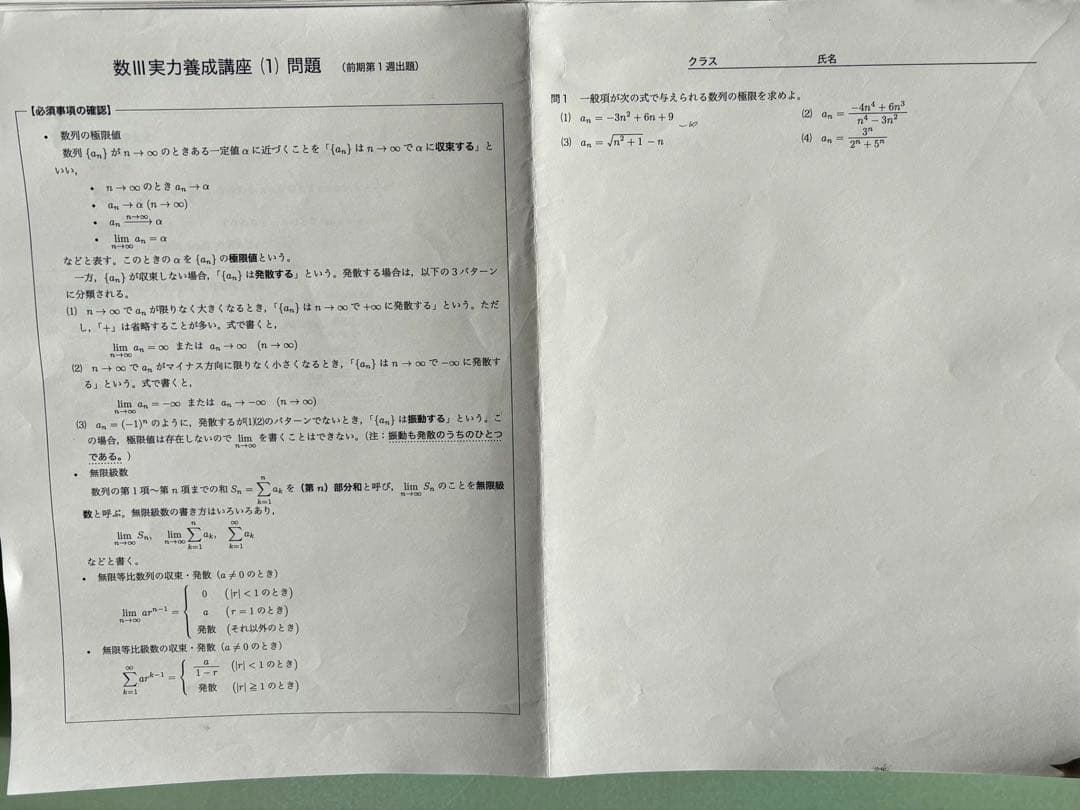 数III実力養成講座（1）問題 （前期第1週出題）
【必須事項の確認】
• 数列の極限値
数列 {aₙ} が n → ∞ のときある一定値 α に近づくことを「{aₙ} は n → ∞ で α に収束する」と
いい，
• n → ∞ のとき aₙ → α
• aₙ → α (n → ∞)
• aₙ \xrightarrow{n→∞} α
• \lim_{n→∞} aₙ = α
などと表す。このときの α を {aₙ} の極限値という。
一方，{aₙ} が収束しない場合，「{aₙ} は発散する」という。発散する場合は，以下の3パターン
に分類される。
(1) n → ∞ で aₙ が限りなく大きくなるとき，「{aₙ} は n → ∞ で +∞ に発散する」という。ただ
し，「+」は省略することが多い。式で書くと，
\lim_{n→∞} aₙ = ∞ または aₙ → ∞ (n → ∞)
(2) n → ∞ で aₙ がマイナス方向に限りなく小さくなるとき，「{aₙ} は n → ∞ で −∞ に発散す
る」という。式で書くと，
\lim_{n→∞} aₙ = −∞ または aₙ → −∞ (n → ∞)
(3) aₙ = (−1)ⁿ のように，発散するが(1)(2)のパターンでないとき，「{aₙ} は振動する」という。こ
の場合，極限値は存在しないので \lim_{n→∞} を書くことはできない。（注：振動も発散のうちのひとつ
である。）
• 無限級数
数列の第1項〜第n項までの和 Sₙ = \sum_{k=1}^{n} aₖ を（第n）部分和と呼び，\lim_{n→∞} Sₙ のことを無限級
数と呼ぶ。無限級数の書き方はいろいろあり，
\lim_{n→∞} Sₙ, \lim_{n→∞} \sum_{k=1}^{n} aₖ, \sum_{k=1}^{∞} aₖ
などと書く。
• 無限等比数列の収束・発散（a ≠ 0 のとき）
\lim_{n→∞} arⁿ⁻¹ = { 0 (|r| < 1 のとき)
a (r = 1 のとき)
発散 (それ以外のとき)
• 無限等比級数の収束・発散（a ≠ 0 のとき）
\sum_{k=1}^{∞} arᵏ⁻¹ = { \frac{a}{1−r} (|r| < 1 のとき)
発散 (|r| ≧ 1 のとき)
クラス 氏名
問1 一般項が次の式で与えられる数列の極限を求めよ。
(1) aₙ = −3n² + 6n + 9 (2) aₙ = \frac{−4n⁴ + 6n³}{n⁴ − 3n²}
−∞
(3) aₙ = \sqrt{n² + 1} − n (4) aₙ = \frac{3ⁿ}{2ⁿ + 5ⁿ}